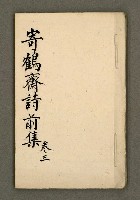 寄鶴齋詩前集
卷三